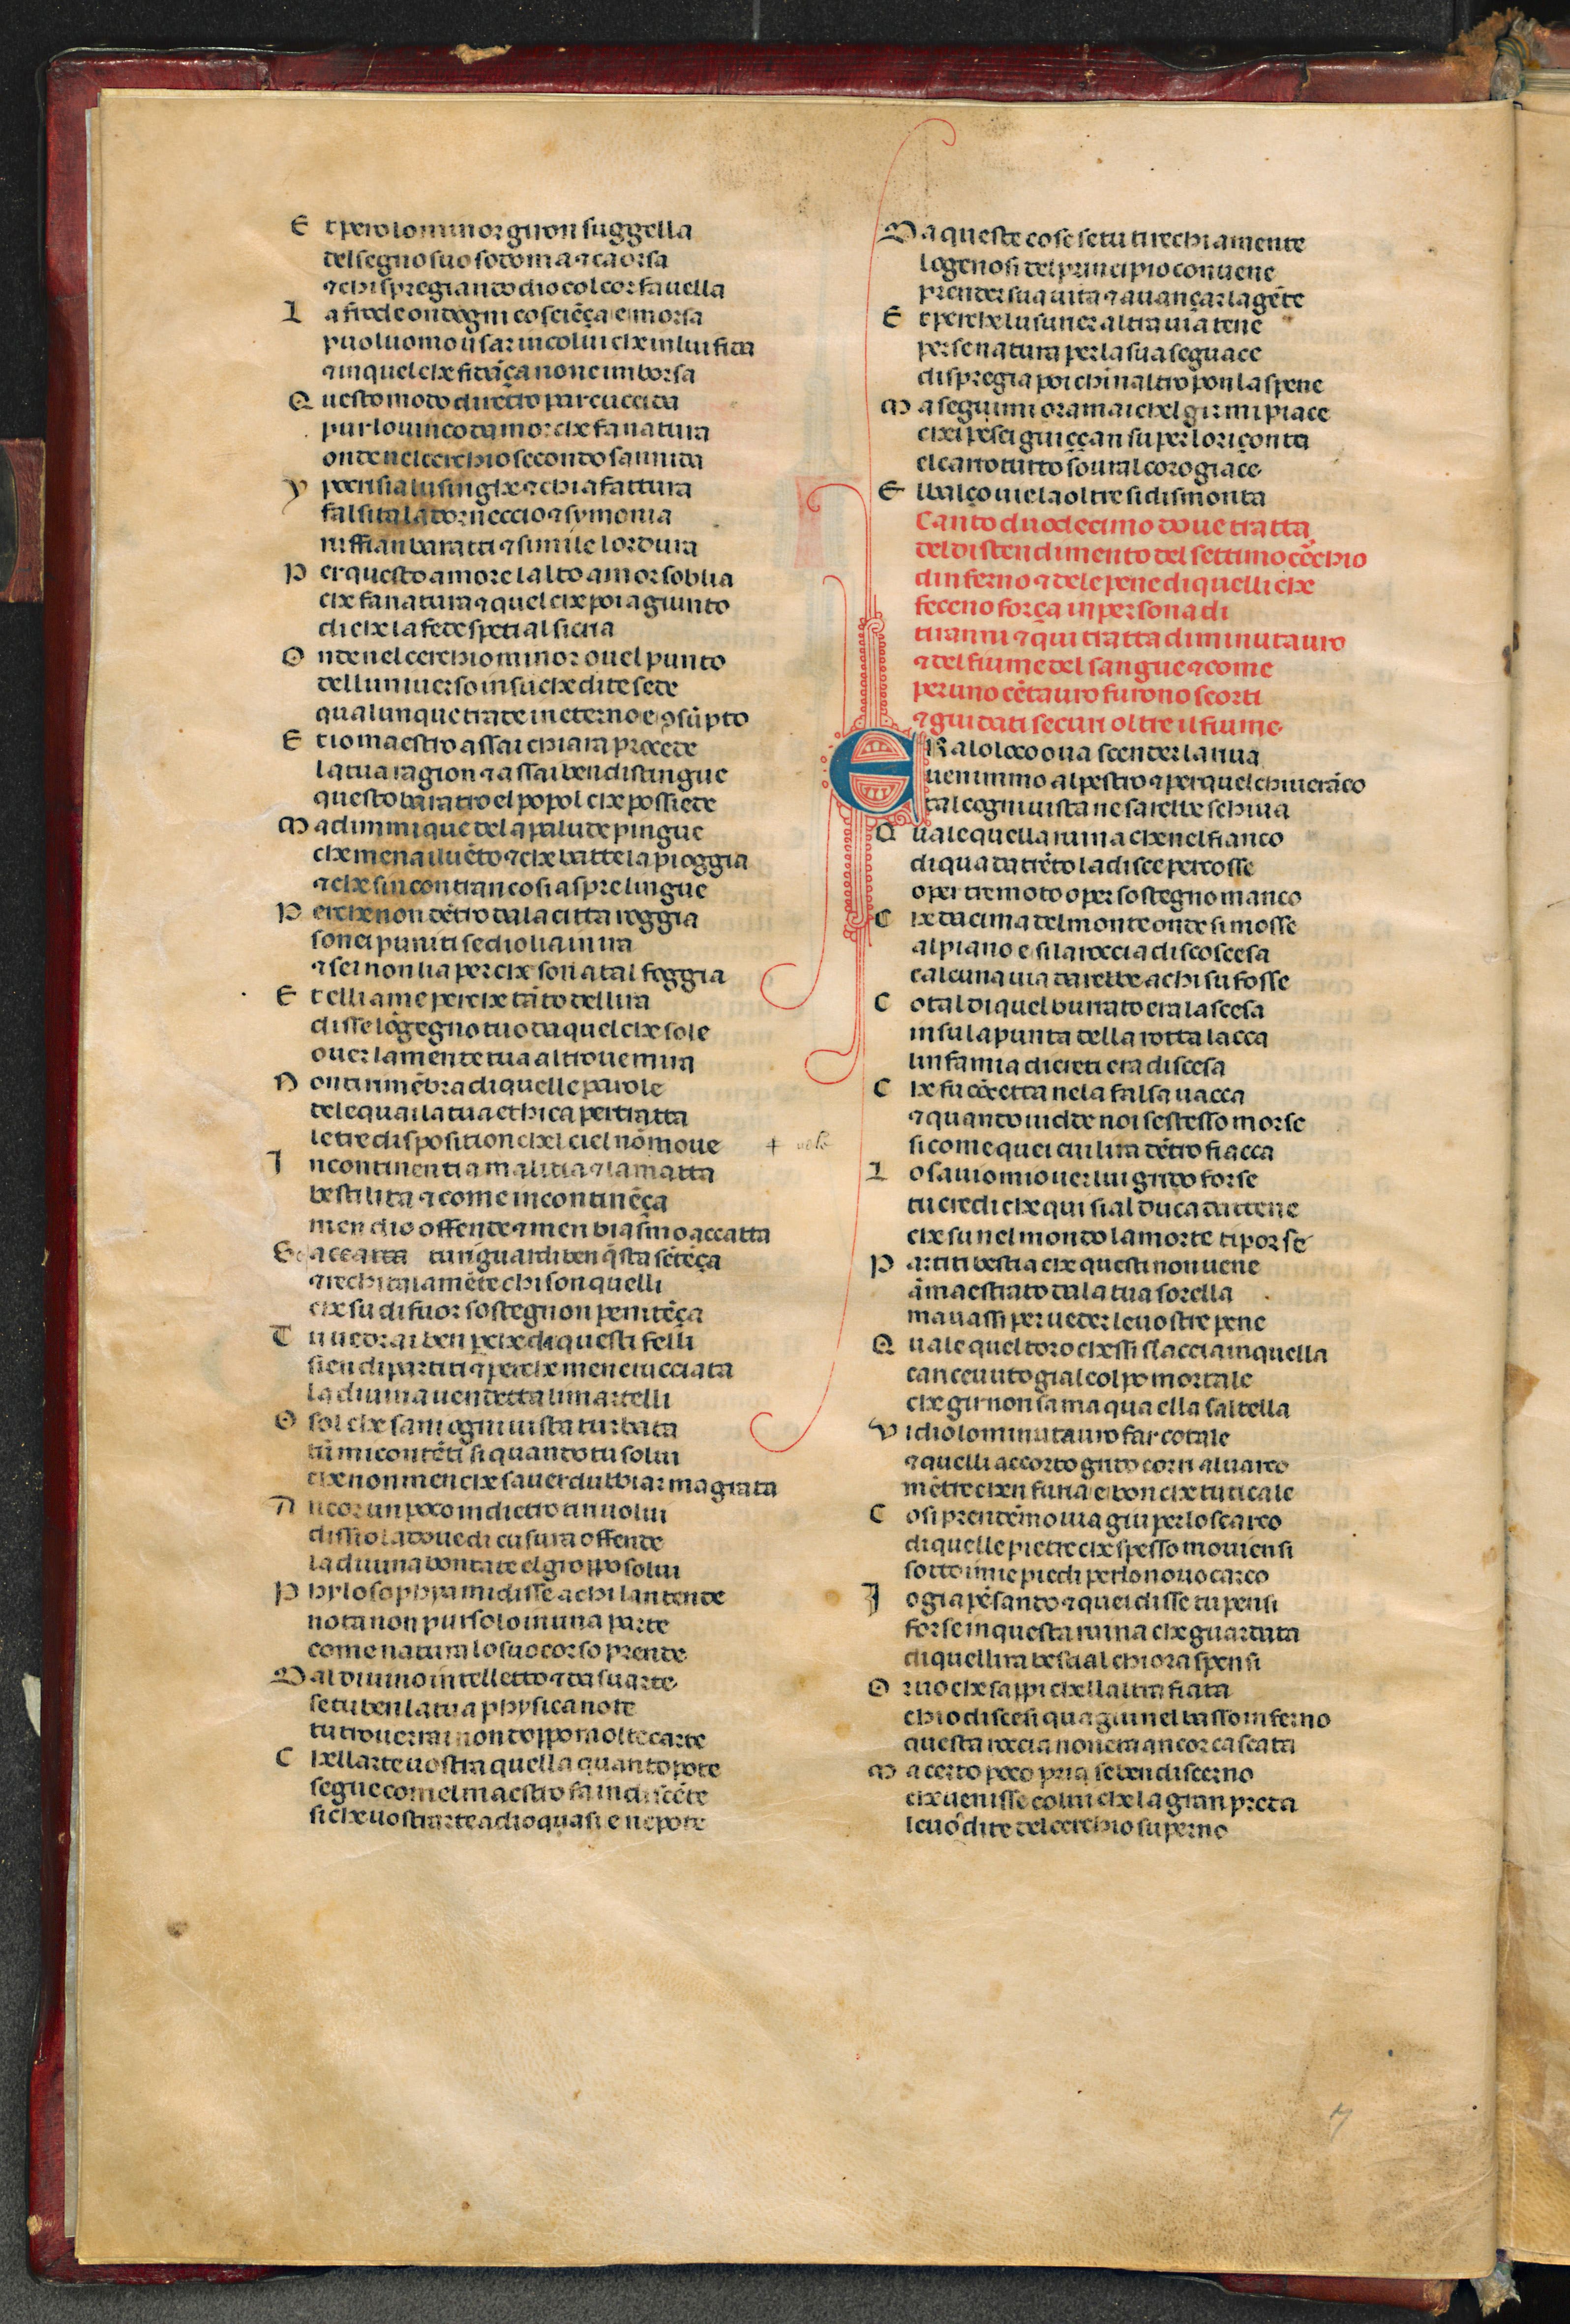 E t pero lo minor giron suggella
del segno suo sodoma ⁊ caorsa
⁊ chi spregiando dio col cor fauella
L a frode ondogni cosciẽça e morsa
puo luomo usar in colui che inlui fida
⁊ in quel che fidãça non e imborsa
Q uesto modo diretro par cuccida
pur lo uinco damor che fa natura
onde nel cerchio secondo sannida
Y pocrisia lusinghe ⁊ chi affattura
falsita ladroneccio ⁊ symonia
ruffian baratti ⁊ simile lordura
P er questo amore lalto amor soblia
che fa natura ⁊ quel che poi agiunto
di che la fede spetial si cria
O nde nel cerchio minor ouel punto
delluniuerso in su che dite sede
qualunque trade in eterno e ꝯsũpto
E t io maestro assai chiara procede
la tua ragion ⁊ assai ben distingue
questo baratro el popol che possiede
M a dimmi que dela palude pingue
che mena il uẽto ⁊ che batte la pioggia
⁊ che sincontran con si aspre lingue
P erche non dẽtro dala citta roggia
son ei puniti se dio li a in ira
⁊ se i non li a perche son a tal foggia
E t elli a me perche tãto dellira
disse lõgegno tuo da quel che sole
ouer la mente tua altroue mira
N on ti rimẽbra di quelle parole
dele quai la tua ethica pertratta
le tre disposition chel ciel nõ moue + uole
I ncontinentia malitia ⁊ la matta
bestilita ⁊ come incontinẽça
men dio offende ⁊ men biasmo accatta
S e accatta tu riguardi ben q̃sta sẽtẽça
⁊ rechiti ala mẽte chi son quelli
che su di fuor sostegnon penitẽça
T u uedrai ben perche da questi felli
sien dipartiti ⁊ perche men crucciata
la diuina uendetta li martelli
O sol che sani ogni uista turbata
tu mi contẽti si quando tu solui
che non men che sauer dubbiar magrata
A ncor un poco in dietro ti riuolui
dissio la doue di cusura offende
la diuina bontate el groppo solui
P hylosophya mi disse a chi lantende
nota non pur solo in una parte
come natura lo suo corso prende
D al diuino intelletto ⁊ da su arte
se tu ben la tua physica note
tu trouerrai non doppo molte carte
C hellarte uostra quella quanto pote
segue comel maestro fa in discẽte
si che uostrarte a dio quasi e nepote
D a queste cose se tu ti rechi a mente
lo genosi del principio conuene
prender sua uita ⁊ auançar la gẽte
E t perche lusurier altra uia tene
per se natura per la sua seguace
dispregia poi chi in altro pon la spene
M a seguimi oramai chel gir mi piace
che i pesci guiççan su per loriçonta
el carro tutto soural coro giace
E l balço uie la oltre si dismonta
Canto duodecimo doue tratta
del distendimento del settimo cẽchio
dinferno ⁊ dele pene di quelli che
feceno força in persona di
tiranni ⁊ qui tratta di minutauro
⁊ del fiume del sangue ⁊ come
per uno cẽtauro furono scorti
⁊ guidati securi oltre il fiume
ERa lo loco oua scender la riua
uenimmo alpestro ⁊ per quel chiuerãco
tal cogni uista ne sarebbe schiua
Q uale quella ruina che nel fianco
di qua da trẽto ladisce percosse
o per tremoto o per sostegno manco
C he da cima del monte onde si mosse
al piano e si la roccia discoscesa
calcuna uia darebbe a chi su fosse
C otal di quel burrato era la scesa
in su la punta della rotta lacca
linfamia di creti era discesa
C he fu cõcetta nela falsa uacca
⁊ quando uidde noi se stesso morse
si come quei cui lira dẽtro fiacca
L o sauio mio uer lui grido forse
tu credi che qui sial duca dattene
che su nel mondo la morte ti porse
P artiti bestia che questi non uene
ãmaestrato dala tua sorella
ma uassi per ueder le uostre pene
Q uale quel toro chessi slaccia in quella
can ceuuto gial colpo mortale
che gir non sa ma qua ella saltella
V idio lo minutauro far cotale
⁊ quelli accorto grido corri al uarco
mẽtre chen furia e bon che tu ti cale
C osi prendẽmo uia giu per lo scarco
di quelle pietre che spesso mouiensi
sotto i mie piedi per lo nouo carco
I o gia pẽsando ⁊ quei disse tu pensi
forse in questa ruina che guardata
di quellira bestial chi ora spensi
O r uo che sappi che llaltra fiata
chio discesi qua giu nel basso inferno
questa roccia non era ancor cascata
M a certo poco pria se ben discerno
che uenisse colui che la gran preda
leuo dite del cerchio superno
7